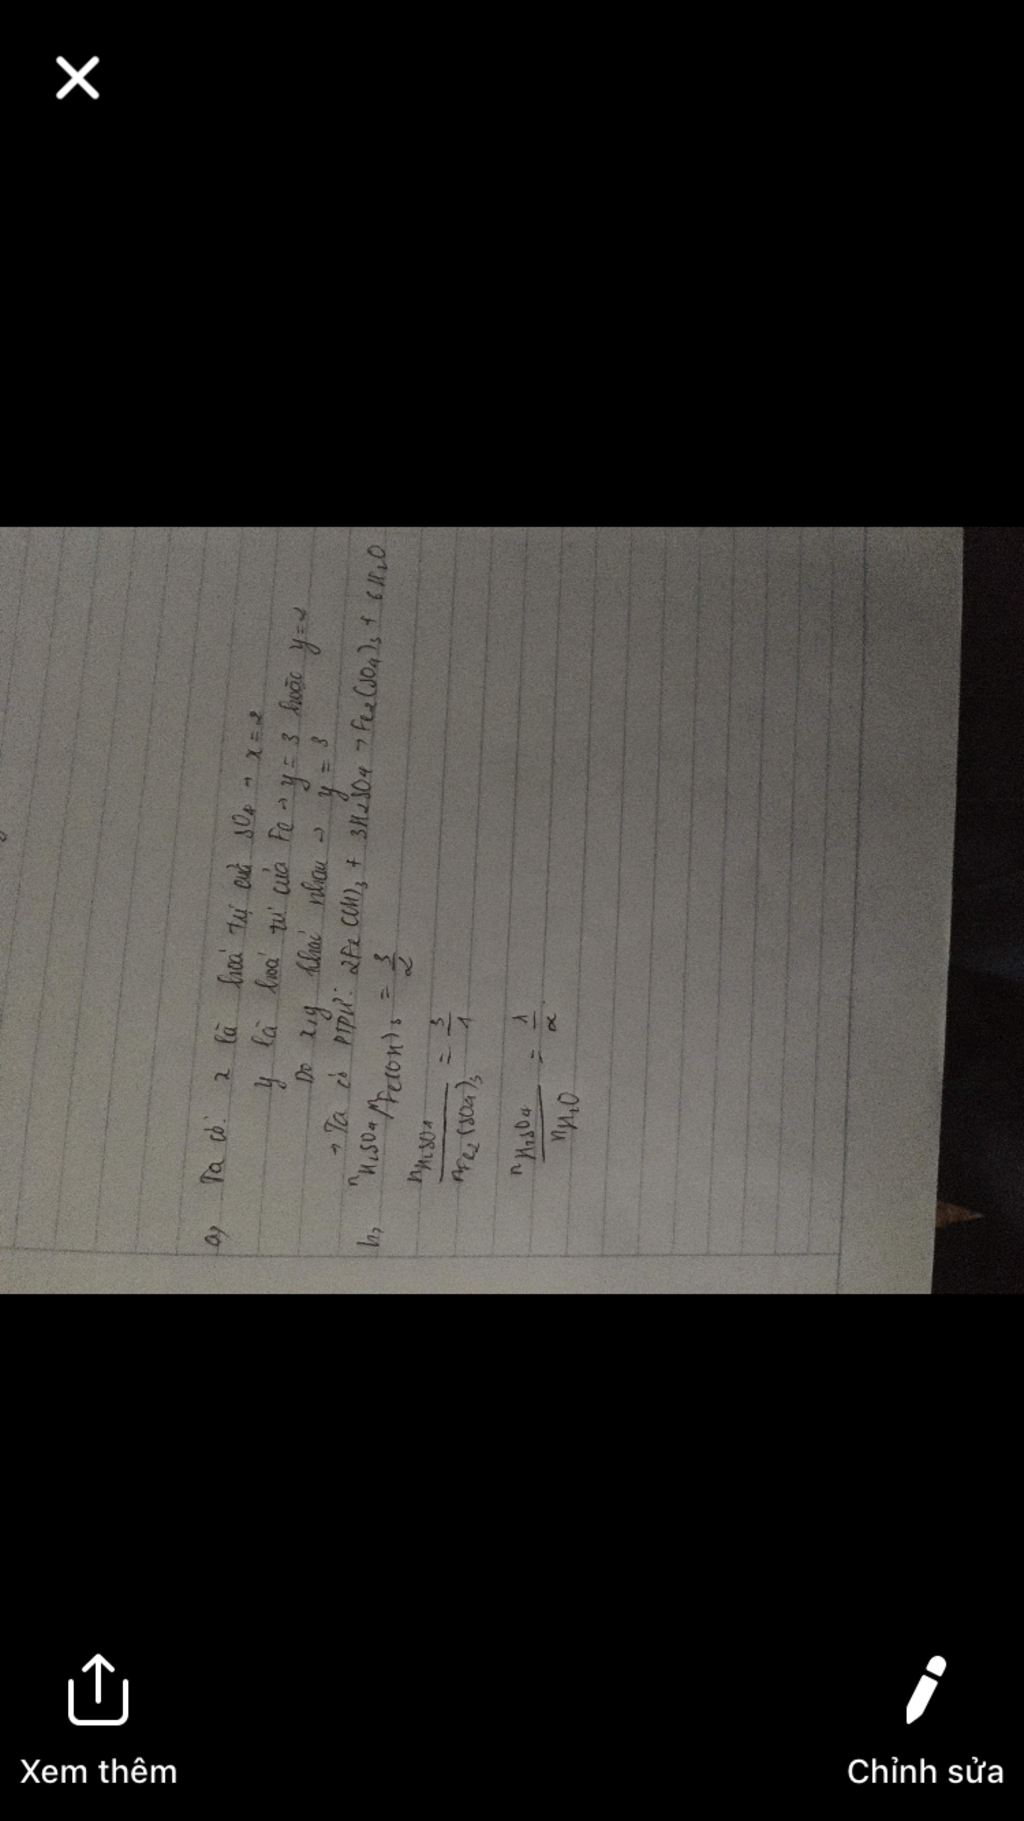 a, Ta có: x là hoá trị của SO4 → x = 2
y là hoá trị của Fe → y = 3 hoặc y = 2
Do x, y khác nhau → y = 3
→ Ta có PTPƯ: 2Fe(OH)3 + 3H2SO4 → Fe2(SO4)3 + 6H2O
b, nH2SO4 / nFe(OH)3 = 3/2
nH2SO4 / nFe2(SO4)3 = 3/1
nH2SO4 / nH2O = 1/2
Xem thêm
Chỉnh sửa